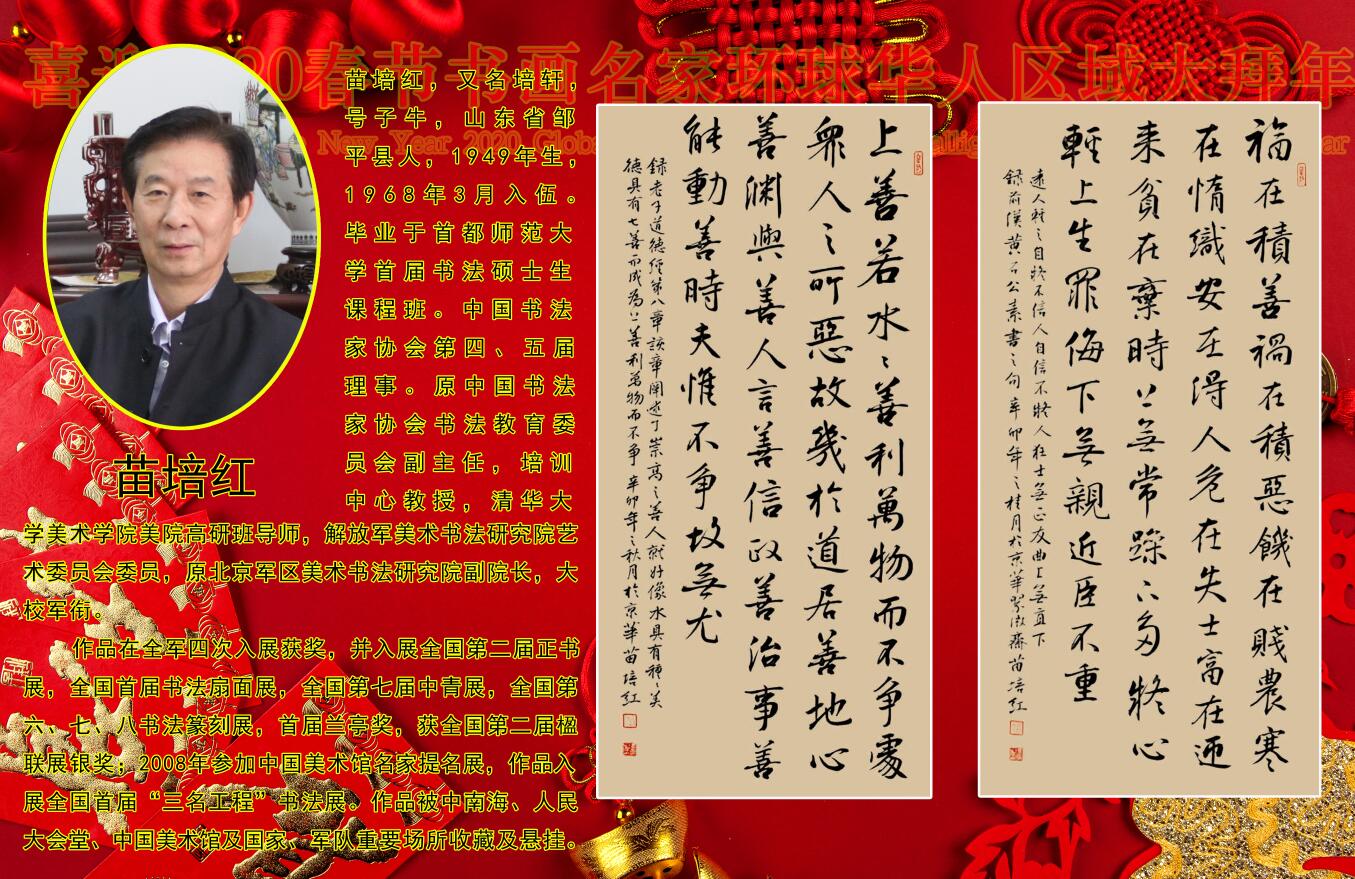 喜迎20春节书画名家环球华人区域大拜年
New Year 2020 Globa
苗培红，又名培轩，
号子牛，山东省邹
平县人，1949年生，
1968年3月入伍。
毕业于首都师范大
学首届书法硕士生
课程班。中国书法
家协会第四、五届
理事。原中国书法
家协会书法教育委
员会副主任，培训
中心教授，清华大
学美术学院美院高研班导师，解放军美术书法研究院艺
术委员会委员，原北京军区美术书法研究院副院长，大
校军衔。
作品在全军四次入展获奖，并入展全国第二届正书
展，全国首届书法扇面展，全国第七届中青展，全国第
六、七、八书法篆刻展，首届兰亭奖，获全国第二届楹
联展银奖；2008年参加中国美术馆名家提名展，作品入
展全国首届“三名工程”书法展。作品被中南海、人民
大会堂、中国美术馆及国家、军队重要场所收藏及悬挂。
苗培红
上善若水〻善利萬物而不争處
衆人之所惡故幾於道居善地心
善渊與善人言善信政善治事善
能動善時夫惟不争故無尤
録老子道德经第八章該章闡述了崇高之善人就好像水具有種〻美
德具有七善而成為上善利萬物而不争 辛卯年之秋月於京華苗培红
福在積善禍在積惡饑在賤農寒
在惰織安在得人危在失士富在迎
来貧在棄時上無常躁下多疑心
輕上生罪侮下無親近臣不重
遠人輕之自疑不信人自信不疑人枉士無正友曲上無直下
録前漢黄石公素書之句 辛卯年之桂月於京華 齋苗培红